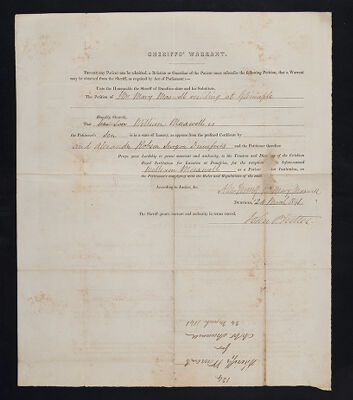 SHERIFFS' WARRANT.
Before any Patient can be admitted, a Relation or Guardian of the Patient must subscribe the following Petition, that a Warrant
may be obtained from the Sheriff, as required by Act of Parliament:—
Unto the Honourable the Sheriff of Dumfries-shire and his Substitute,
The Petition of Mrs Mary Maxwell residing at
Humbly Sheweth,
That her Son William Maxwell is
the Petitioner's son is in a state of lunacy, as appears from the prefixed Certificate by
and Alexander Surgeon Dumfries and the Petitioner therefore
Prays your Lordship to grant warrant and authority to the Trustees and Directors of the Crichton
Royal Institution for Lunatics at Dumfries, for the reception of the beforenamed
William Maxwell as a Patient in that Institution, on
the Petitioner complying with the Rules and Regulations of the same.
According to Justice, &c.
Mary Maxwell
Dumfries, 24 March 1841
The Sheriff grants warrant and authority in terms craved.
134
Sheriffs Warrant
for
24 March 1841